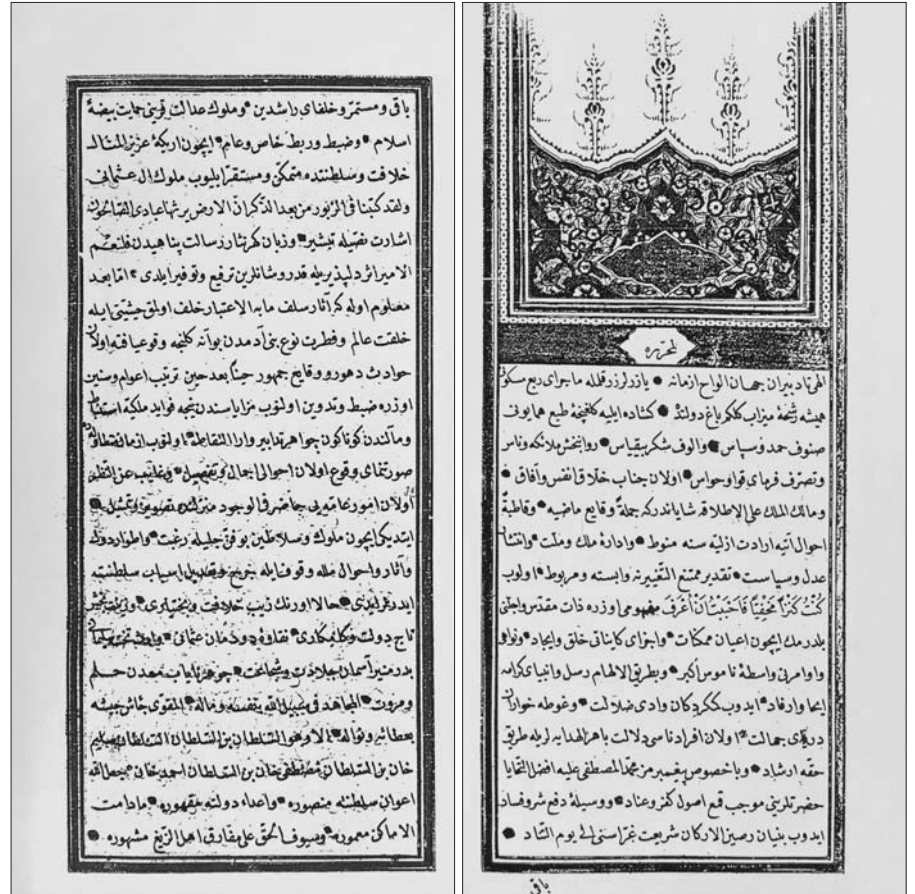 لمحرره
الهی تا دبیران جهان الواح ازمانه • یازرلر زر قلمله ماجرای ربع مسکونی
همیشه رشحهٔ میزاب کلکم باغ دولتده • کشاده ایلیه کلغنچهٔ طبع همایونی
صنوف حمد وسپاس • والوف شکر بیقیاس • روانبخش ملائکه وناس
وتصرف فرمای قوا وحواس • اولان جناب خلاق انفس وآفاق •
ومالك الملك علی الاطلاقه شایاندرکه جملهٔ وقایع ماضیه • وقاطبهٔ
احوال آتیه ارادت ازلیه سنه منوط • وادارهٔ ملك وملت • وانتشار
عدل وسیاست • تقدیر ممتنع التغییرنه وابسته ومربوط • اولوب
كُنْتُ كَنْزاً مَخْفِيّاً فَاَحْبَبْتُ اَنْ اُعْرَفَ مفهومی اوزره ذات مقدس واجبنی
بلدرمك ایچون اعیان ممکنات • واجزای کایناتی خلق وایجاد • ونواهی
واوامرنی واسطهٔ ناموس اکبر • وبطریق الالهام رسل وانبیای کرامه
ایما وارفاد • ایدوب ککردکان وادی ضلالت • وغوطه خواران
دریای جهالت • اولان افراد ناسی دلالت باهر الهدایه لریله طریق
حقه ارشاد • وباخصوص پیغمبرمز محمد المصطفی علیه افضل التحایا
حضرتلرینی موجب قمع اصول کفر وعناد • ووسیلهٔ دفع شر وفساد
ایدوب بنیان رصین الارکان شریعت غراسنی الی یوم التناد •
باقی
باقی ومستمر وخلفای راشدین • وملوك عدالت قرینی حمایت بیضهٔ
اسلام • وضبط وربط خاص وعام • ایچون اریکهٔ عزیز المثال
خلافت وسلطنتده متمکن ومستقر ایلیوب ملوك ال عثمانی
ولقد كتبنا فی الزبور من بعد الذكر ان الارض یرثها عبادی الصالحون
اشارت نصیله تبشیر • وزبان کهرنثار رسالت پناهیدن فلنعم
الامیر اثر دلپذیریله قدر وشانلرین ترفیع وتوفیر ایلدی • اما بعد
معلوم اوله که آثار سلف مابه الاعتبار خلف اولق حیثیتی ایله
خلقت عالم وفطرت نوع بنی آدمدن بو آنه کلنجه وقوعیافته اولان
حوادث دهور ووقایع جمهور حیناً بعد حین ترتیب اعوام وسنین
اوزره ضبط وتدوین اولنوب مزایاسندن نیجه فواید ملکیه استنباط
ومآلندن کوناکون جواهر تدابیر وآرا التقاط • اولنوب
صورتنمای وقوع اولان احوالی اجمال وتفصیله • وغایب عن النظر
اولان امور عامه یی حاضر فی الوجود منزلنده تصویر وتمثیل •
ایتدیکی ایچون ملوك وسلاطین بو فن جلیله رغبت • واطوار دول
وآثار واحوال ملله وقوفایله جرح وتعدیل اسباب سلطنتنه
ایدرلر ایدی • حالا اورنك زیب خلافت وبختیاری • وزینت بخش
تاج دولت وکامکاری • نقاوهٔ دودمان عثمانی • وارث تخت سلیمانی
بدر منیر آسمان جلادت وشجاعت • جوهر نایاب معدن حلم
ومروت • المجاهد فی سبیل الله بنفسه وماله • المقوی جأش جیشه
بعطائه ونواله • الا وهو السلطان بن السلطان السلطان سلیم
خان بن السلطان مصطفی خان بن السلطان احمد خان • جعل الله
اعوان سلطنته منصوره • واعداء دولته مقهوره • مادامت
الاماكن معموره • وسیوف الحق علی مفارق اهل الزیغ مشهوره •